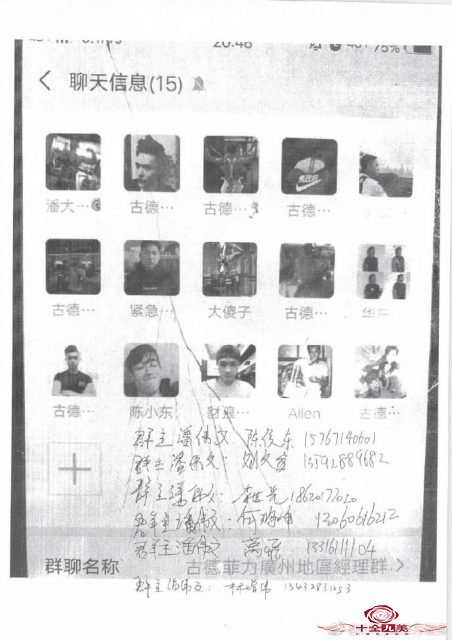 20:48
75%
聊天信息(15)
潘大…
古德…
古德…
古德…
古德…
紧急…
大傻子
古德…
华…
古德…
陈小东
豺狼…
Allen
古德…
群主潘伟文 陈俊东 15767140601
群主潘伟文: 刘文富 13592889682
群主潘伟文: 18620177020
群主潘伟文: 何 13060616212
群主潘伟文 高 13316111104
群聊名称 古德菲力廣州地區經理群
群主潘伟文: 林 13432831253
十全思美